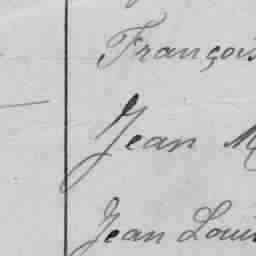 François
Jean M
Jean Louis